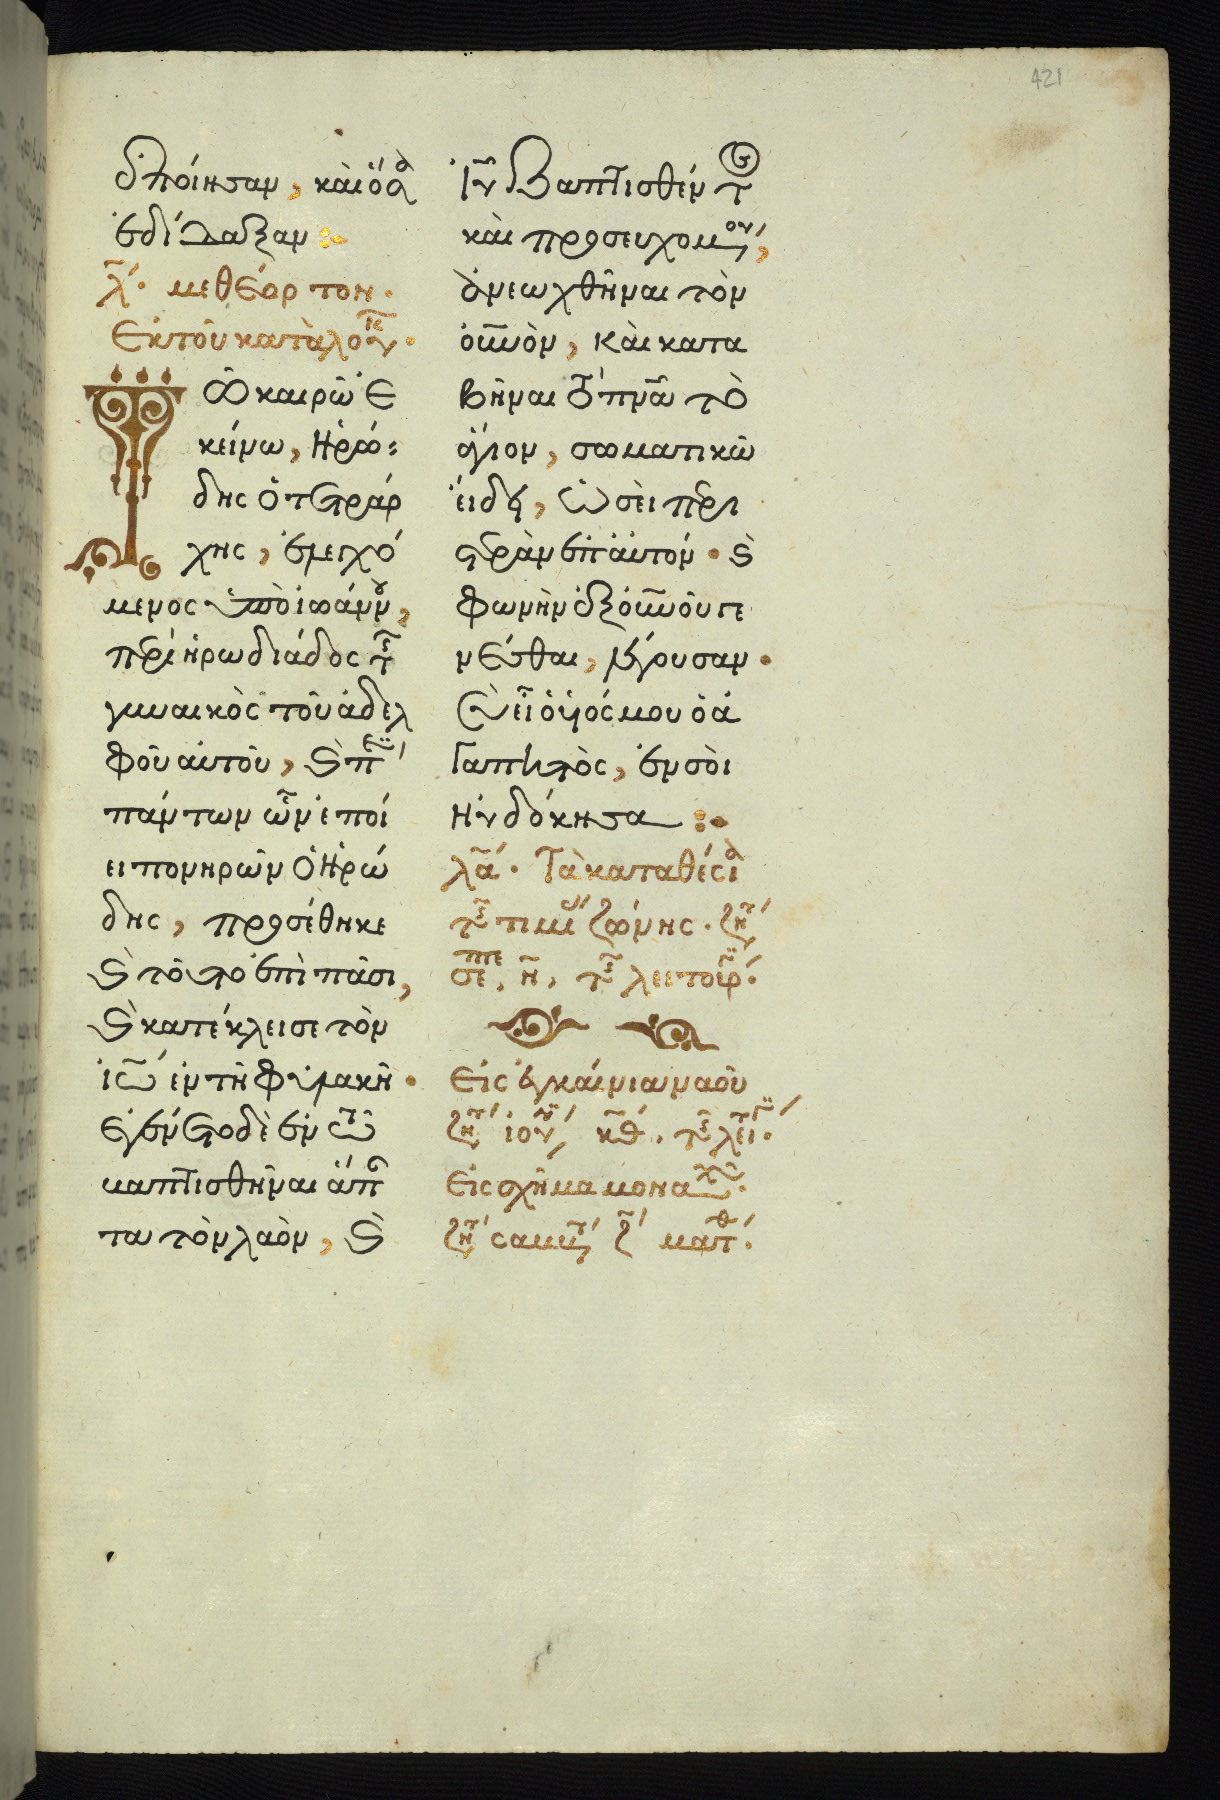 421
ἐποίησαν, καὶ ὅσα
ἐδίδαξαν:
λ. μεθέορτον.
Ἐκ τοῦ κατὰ λουκ.
Τῶ καιρῶ ἐ
κείνω, Ἡρώ
δης ὁ τετράρ
χης, ἐλεγχό
μενος ὑπὸ ἰωάννου,
περὶ ἡρωδιάδος τῆς
γυναικὸς τοῦ ἀδελ
φοῦ αὐτοῦ, καὶ περὶ
πάντων ὧν ἐποί
ει πονηρῶν ὁ Ἡρώ
δης, προσέθηκε
καὶ τοῦτο ἐπὶ πᾶσι,
καὶ κατέκλεισε τὸν
ἰω ἐν τῆ φυλακῆ.
ἐγένετο δὲ ἐν τῶ
βαπτισθῆναι ἅπαν
τα τὸν λαὸν, καὶ
ιυ βαπτισθέντος
καὶ προσευχομένου,
ἀνεωχθῆναι τὸν
οὐνὸν, καὶ κατα
βῆναι τὸ πνα τὸ
ἅγιον, σωματικῶ
εἴδει, ὡσεὶ περι
στερὰν ἐπ αὐτόν. καὶ
φωνὴν ἐξ οὐνοῦ γε
νέσθαι, λέγουσαν.
Σὺ εἶ ὁ υἱός μου ὁ ἀ
γαπητὸς, ἐν σοὶ
ηὐδόκησα:
λα. Τὰ καταθέσια
τῆς τιμί ζώνης. ζητ
σεππε, η, τῆς λειτουρ.
Εἰς ἐγκαίνια ναοῦ
ζητ ἰουν, κθ. τῆς λειτ.
Εἰς σχῆμα μοναχοῦ.
ζητ σαββ ζ ματθ.